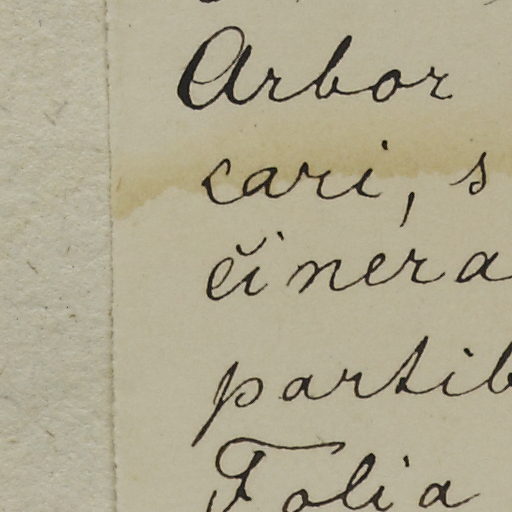 Arbor
cari, s
cinera
partib
Folia